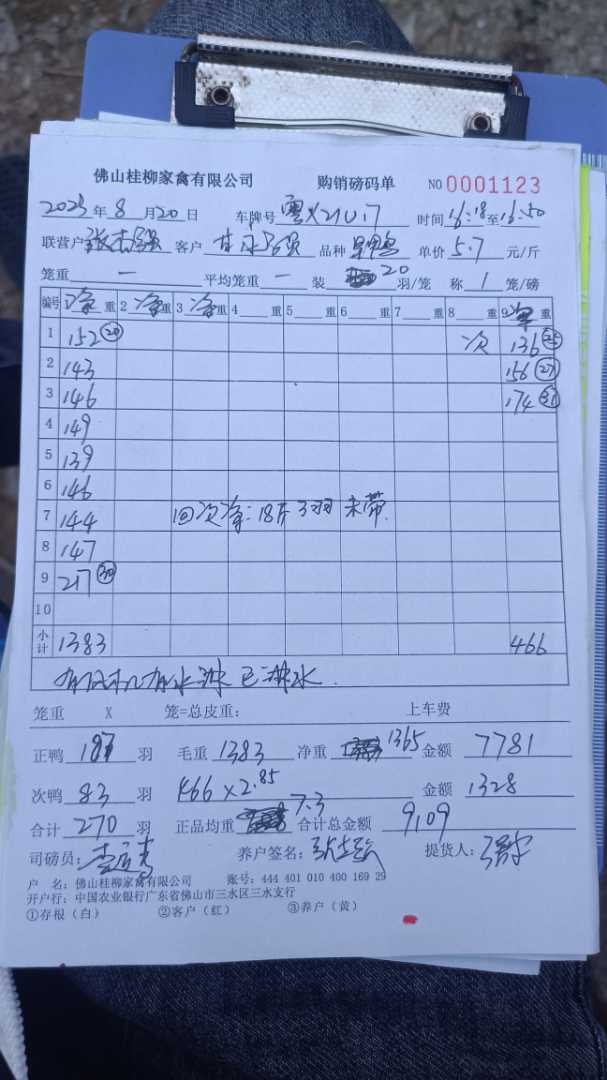 佛山桂柳家禽有限公司 购销磅码单 NO 0001123
2023年8月20日 车牌号 时间16:18至16:50
联营户 客户 品种 单价5.7元/斤
笼重 一 平均笼重 一 装 20 羽/笼 称 1 笼/磅
编号 净重 2 净重 3 净重 4 重 5 重 6 重 7 重 8 重 9 重
1 152 20 次 136 25
2 143 156 27
3 146 174 31
4 149
5 139
6 146
7 144 回次净:18斤3羽 未带.
8 147
9 217 30
10
小计 1383 466
已淋水.
笼重 X 笼=总皮重: 上车费
正鸭 187 羽 毛重 1383 净重 1365 金额 7781
次鸭 83 羽 466×2.85 金额 1328
合计 270 羽 正品均重 7.3 合计总金额 9109
司磅员: 养户签名: 提货人:
户 名:佛山桂柳家禽有限公司 账号:444 401 010 400 169 29
开户行:中国农业银行广东省佛山市三水区三水支行
①存根(白) ②客户(红) ③养户(黄)